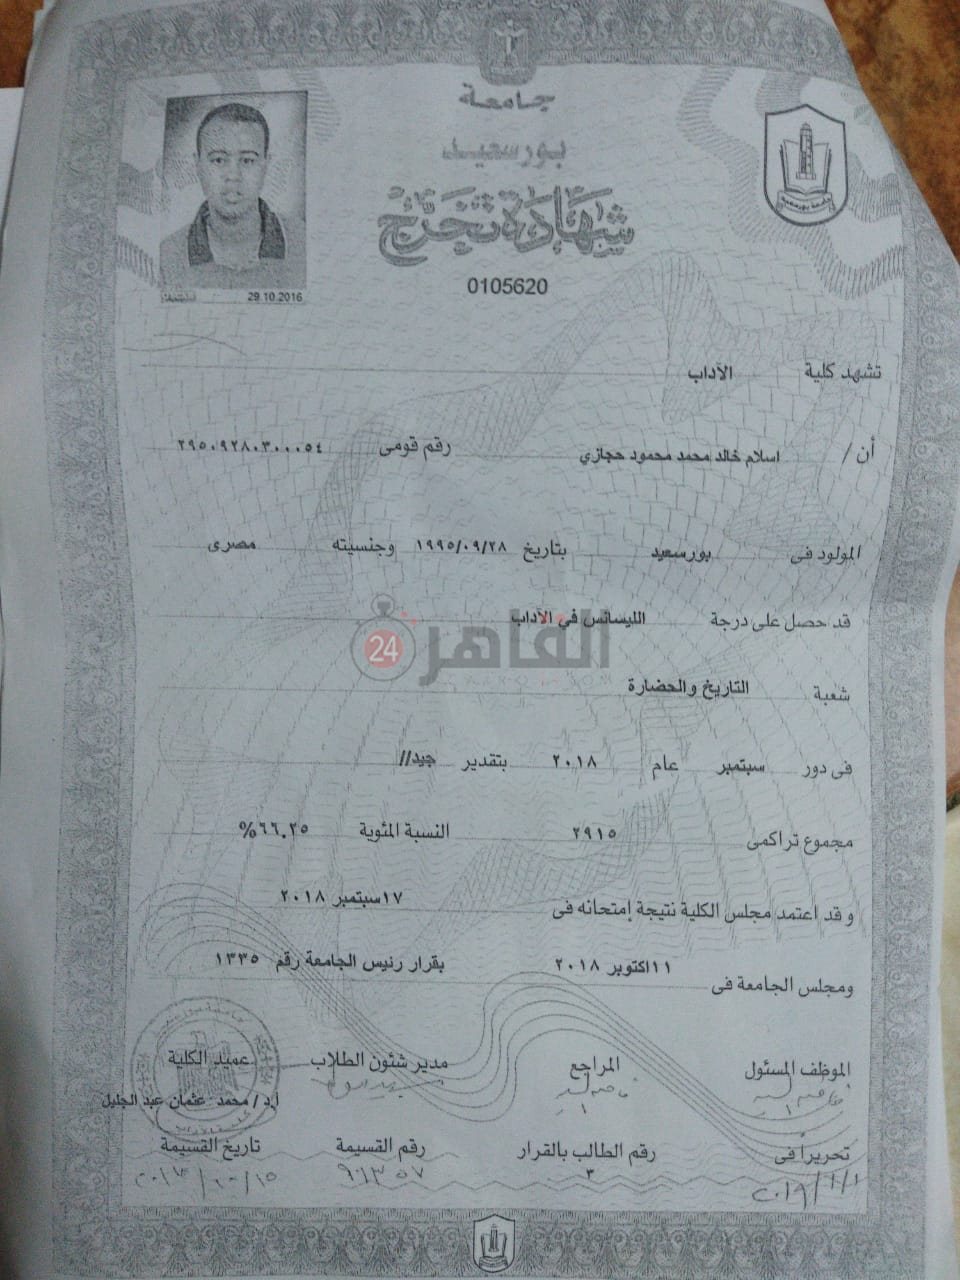 جامعة
بورسعيد
شهادة تخرج
0105620
29.10.2016
جامعة بورسعيد
تشهد كلية الآداب
أن / اسلام خالد محمد محمود حجازي رقم قومى ٢٩٥٠٩٢٨٠٣٠٠٠٥٤
المولود فى بورسعيد بتاريخ ١٩٩٥/٠٩/٢٨ وجنسيته مصرى
قد حصل على درجة الليسانس في الآداب
القاهرة 24
شعبة التاريخ والحضارة
فى دور سبتمبر عام ٢٠١٨ بتقدير جيد//
مجموع تراكمى ٢٩١٥ النسبة المئوية ٦٦.٢٥%
وقد اعتمد مجلس الكلية نتيجة إمتحانه فى ١٧سبتمبر ٢٠١٨
ومجلس الجامعة فى ١١اكتوبر ٢٠١٨ بقرار رئيس الجامعة رقم ١٣٣٥
الموظف المسئول المراجع مدير شئون الطلاب عميد الكلية
ا.د / محمد عثمان عبد الجليل
تحريراً فى رقم الطالب بالقرار رقم القسيمة تاريخ القسيمة
٢٠١٩/١/١ ٣